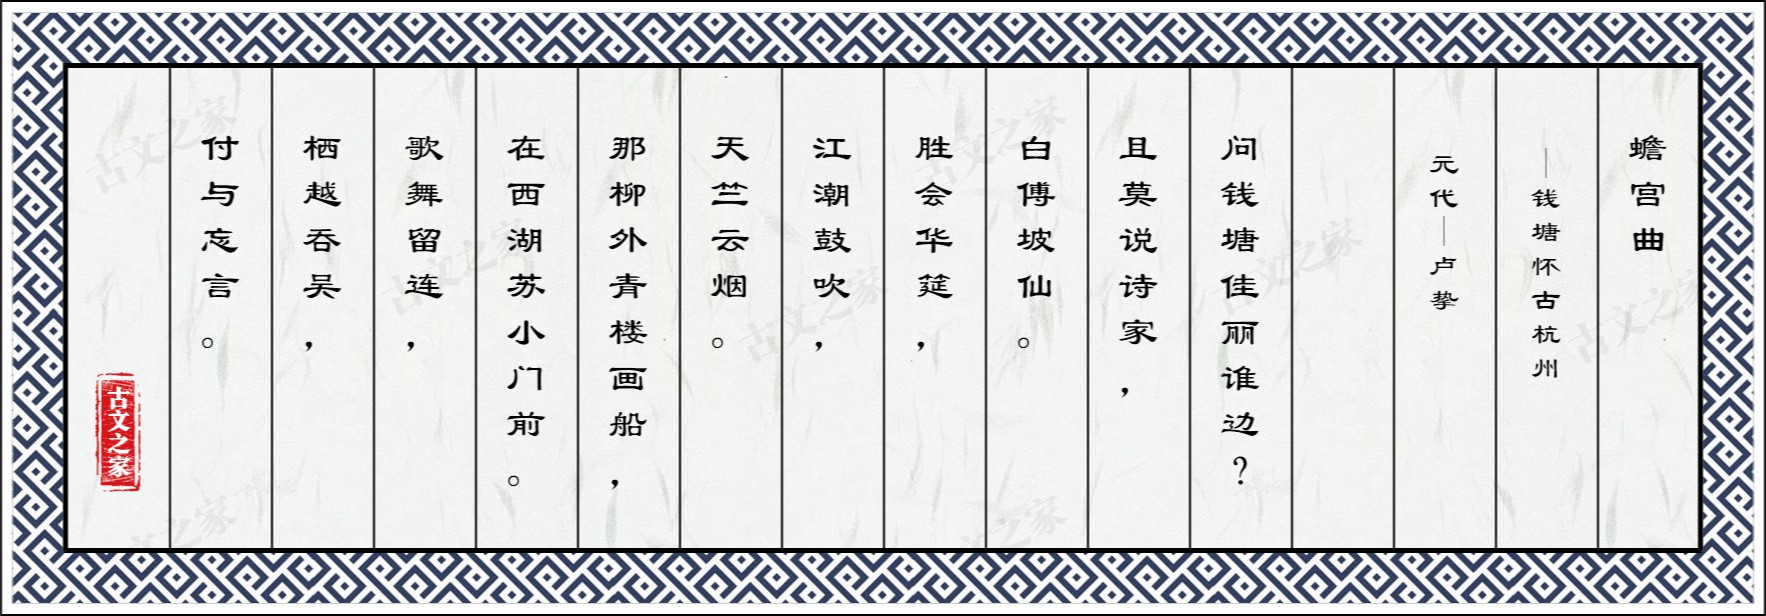 蟾宫曲
—钱塘怀古杭州
元代—卢挚
问钱塘佳丽谁边？
且莫说诗家，
白傅坡仙。
胜会华筵，
江潮鼓吹，
天竺云烟。
那柳外青楼画船，
在西湖苏小门前。
歌舞留连，
栖越吞吴，
付与忘言。
古文之家